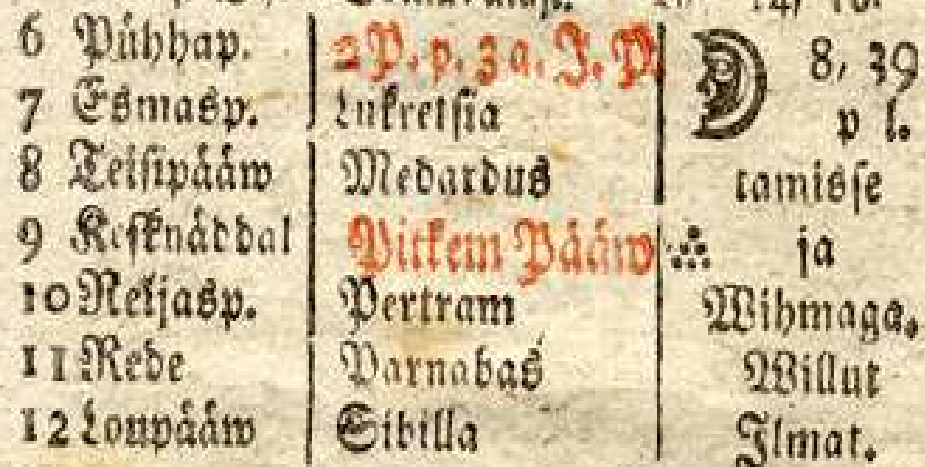 14, 10.
6 Pühhap. 2 P. p. 3 a. J. P. 8, 39
7 Esmasp. Lukretsia p l.
8 Teisipääw Medardus tamisse
9 Kesknäddal Pitkem Pääw ja
10 Neljasp. Pertram Wihmaga.
11 Rede Parnabas Willut
12 Loupääw Sibilla Ilmat.